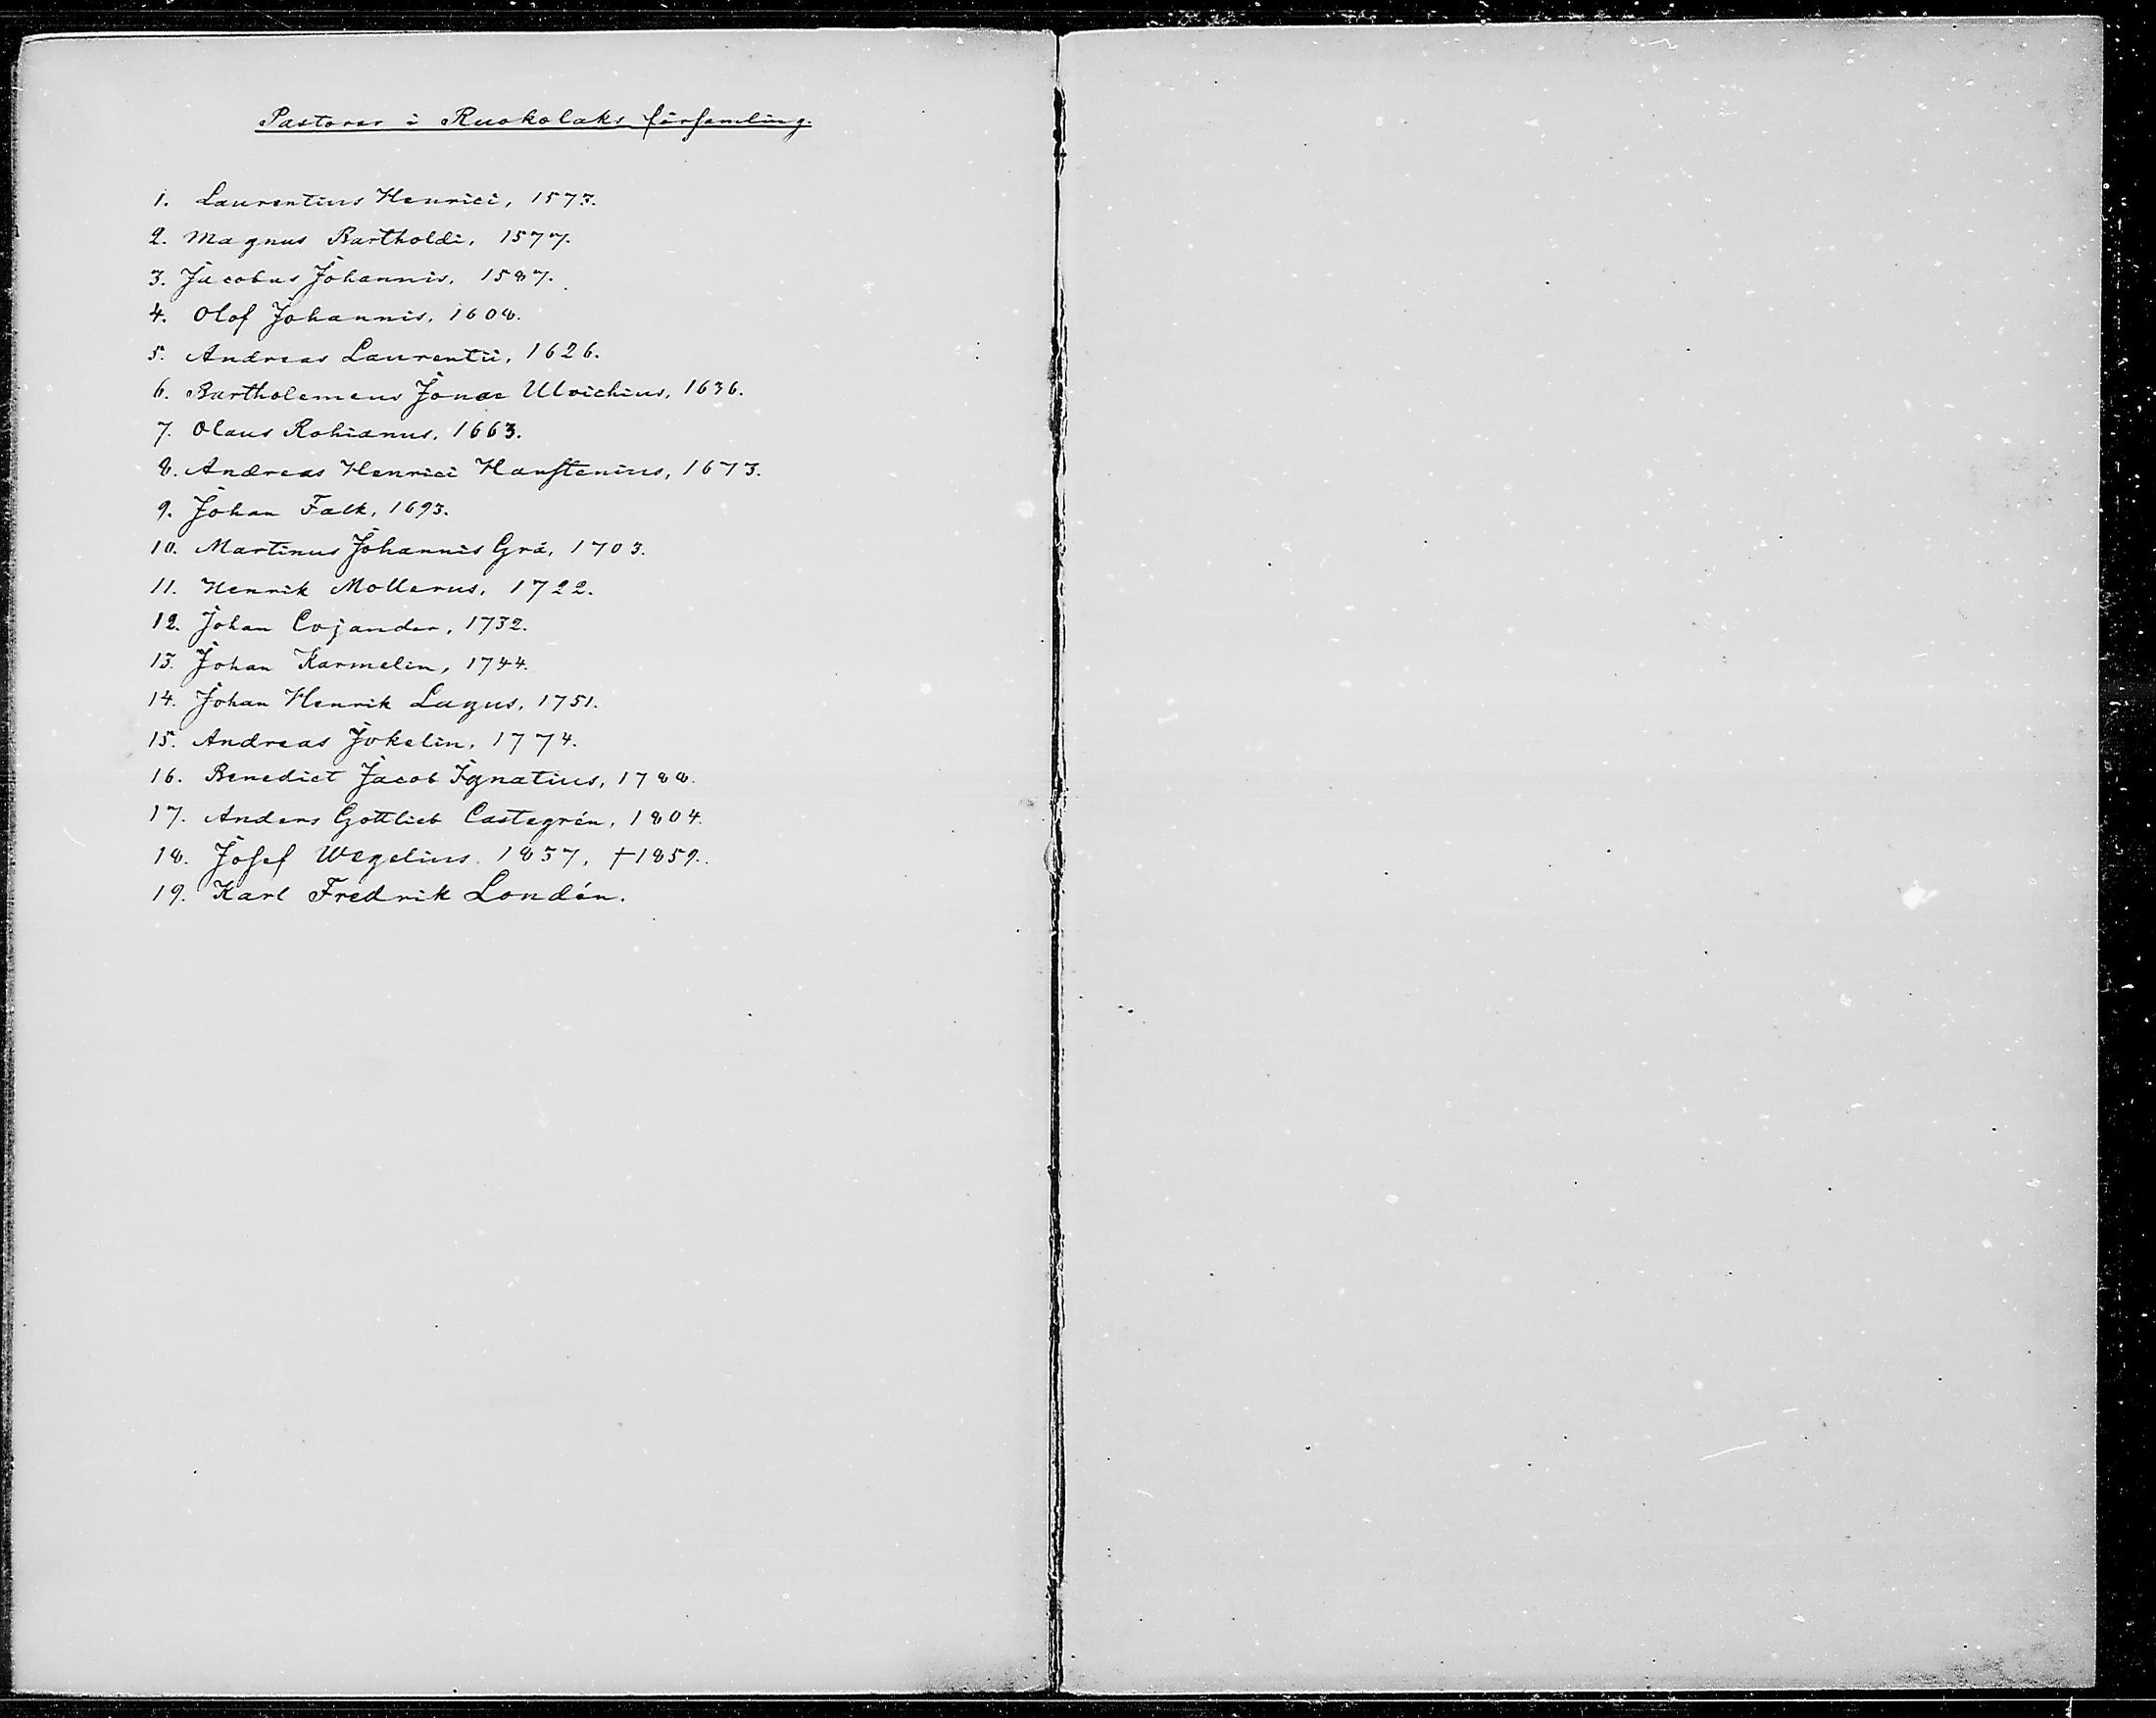 Pastorer i Ruokolaks församling.
1. Laurentius Henrici, 1573.
2. Magnus Bartholdi, 1577.
3. Jacobus Johannis, 1587.
4. Olof Johannis, 1608.
5. Andreas Laurentii, 1626.
6. Bartholemeus Jonae Ulvichius, 1636.
7. Olaus Rohianus, 1663.
8. Andreas Henrici Hanstenius, 1673.
9. Johan Falk, 1693.
10. Martinus Johannis Grå, 1703.
11. Henrik Mollerus, 1722.
12. Johan Cojander, 1732.
13. Johan Karmelin, 1744.
14. Johan Henrik Lagus, 1751.
15. Andreas Jokelin, 1774.
16. Benedict Jacob Ignatius, 1788.
17. Anders Gottlieb Castegrén, 1804.
18. Josef Wegelius. 1837, †1859.
19. Karl Fredrik Londén.